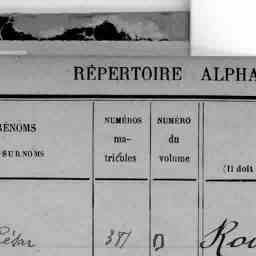 RÉPERTOIRE ALPHA
ÉNOMS
SURNOMS
NUMÉROS
ma-
tricules
NUMÉRO
du
volume
(Il doit
César 381